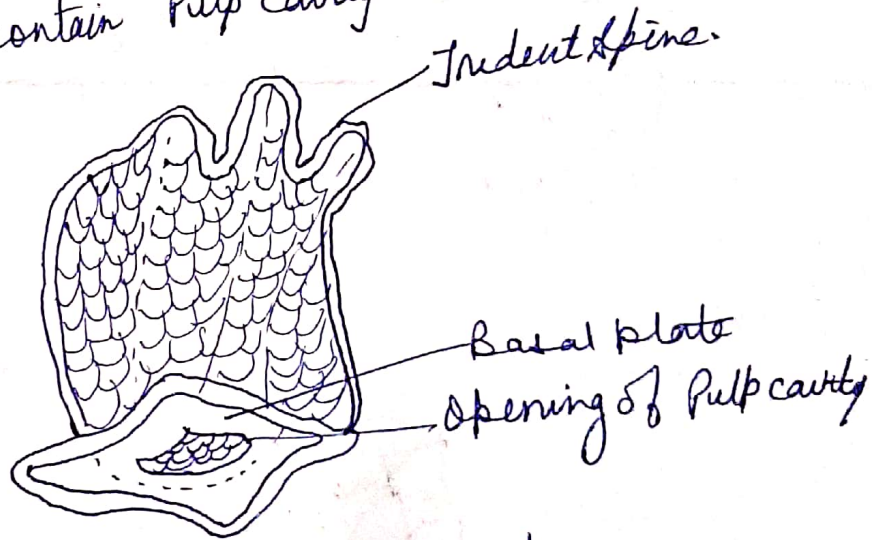 ontain Pulp cavity
Trident Spine.
Basal plate
Opening of Pulp cavity